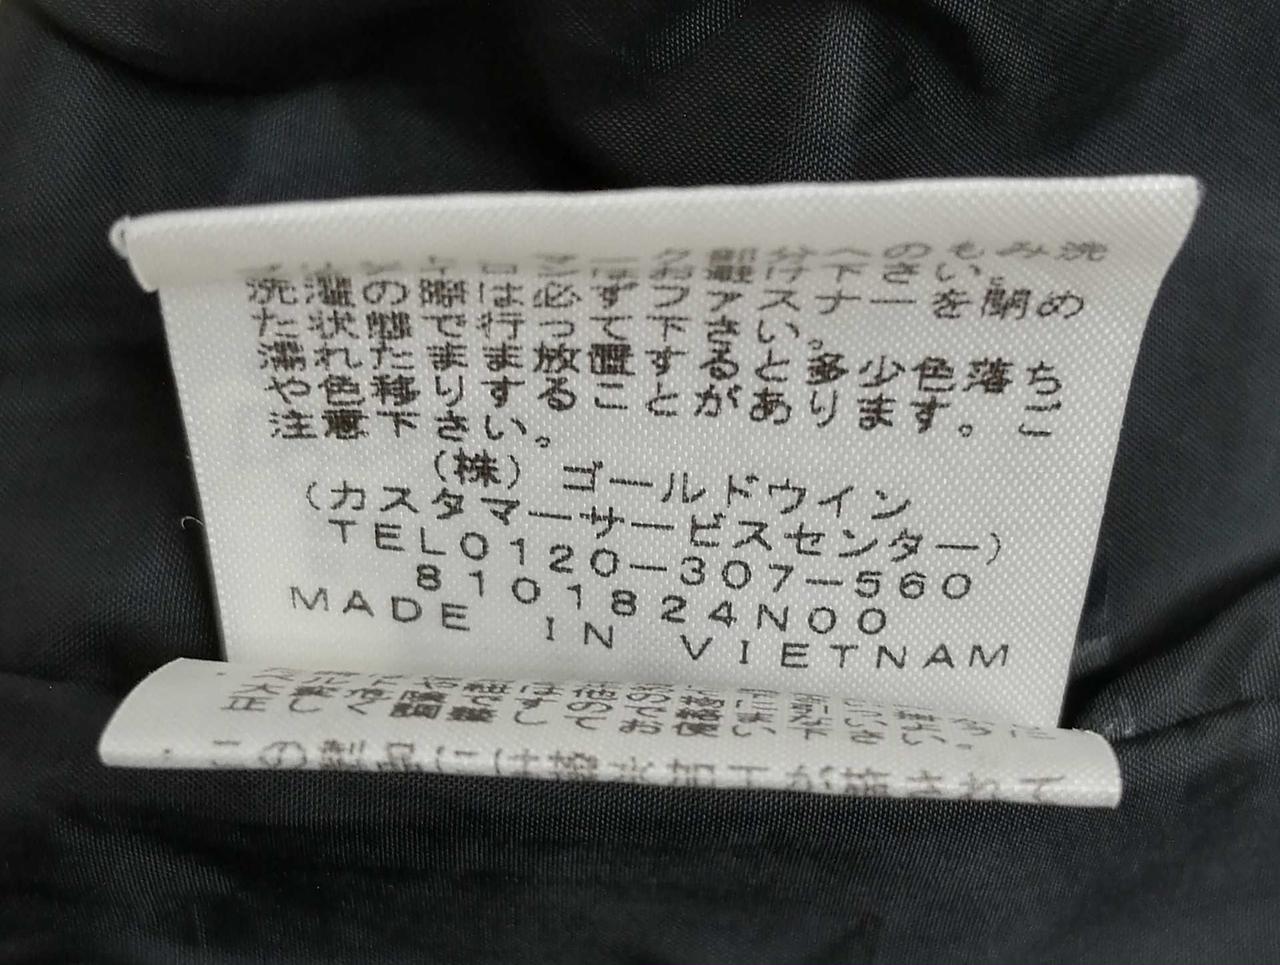 お避け下さい。
洗濯の際は必ずファスナーを閉め
た状態で行って下さい。
濡れたまま放置すると多少色落ち
や色移りすることがあります。ご
注意下さい。
(株)ゴールドウイン
(カスタマーサービスセンター)
TEL0120-307-560
8101824N00
MADE IN VIETNAM
・この製品には撥水加工が施されて